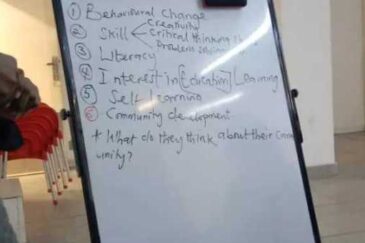 ① Behavioural Change
Creativity
② Skill Critical thinking
Problem solving
③ Literacy
④ Interest in Education/Learning
⑤ Self Learning
⑥ Community development
* What do they think about their Comm
unity?